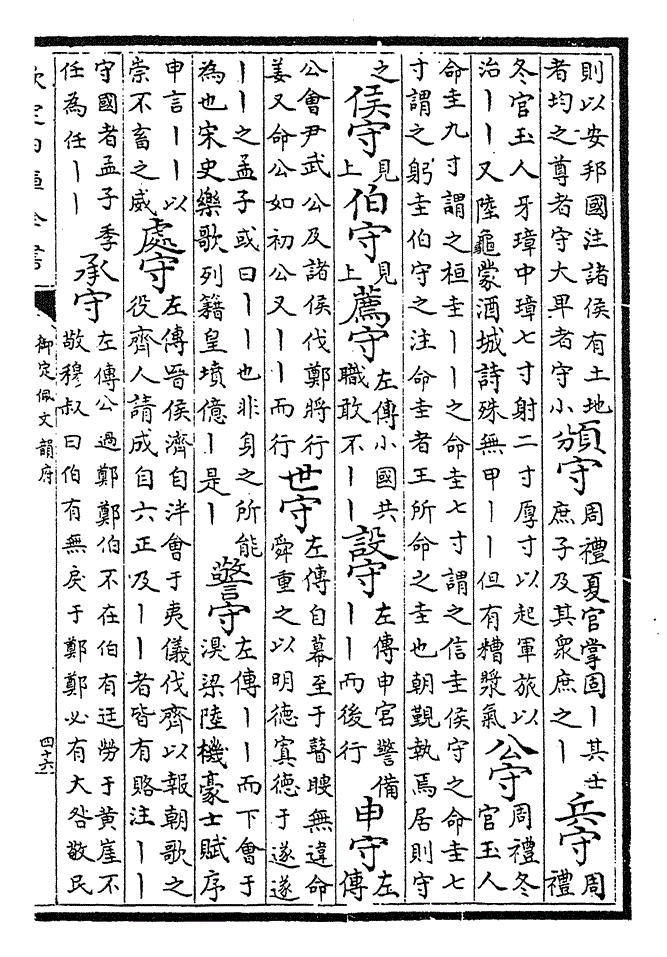 則以安邦國注諸侯有土地
者均之尊者守大卑者守小
頒守
周禮夏官掌固丨其士
庶子及其衆庶之丨
兵守
周
禮
冬官玉人牙璋中璋七寸射二寸厚寸以起軍旅以
治丨丨又陸龜蒙酒城詩殊無甲丨丨但有糟漿氣
公守
周禮冬
官玉人
命圭九寸謂之桓圭丨丨之命圭七寸謂之信圭侯守之命圭七
寸謂之躬圭伯守之注命圭者王所命之圭也朝覲執焉居則守
之
侯守
見
上
伯守
見
上
薦守
左傳小國共
職敢不丨丨
設守
左傳申官警備
丨丨而後行
申守
左
傳
公會尹武公及諸侯伐鄭將行
姜又命公如初公又丨丨而行
世守
左傳自幕至于瞽瞍無違命
舜重之以明德寘德于遂遂
丨丨之孟子或曰丨丨也非身之所能
為也宋史樂歌列籍皇墳億丨是丨
警守
左傳丨丨而下會于
溴梁陸機豪士賦序
申言丨丨以
崇不畜之威
處守
左傳晉侯濟自泮會于夷儀伐齊以報朝歌之
役齊人請成自六正及丨丨者皆有賂注丨丨
守國者孟子季
任為任丨丨
承守
左傳公過鄭鄭伯不在伯有迋勞于黄崖不
敬穆叔曰伯有無戾于鄭鄭必有大咎敬民
欽定四庫全書
御定佩文韻府
四十六